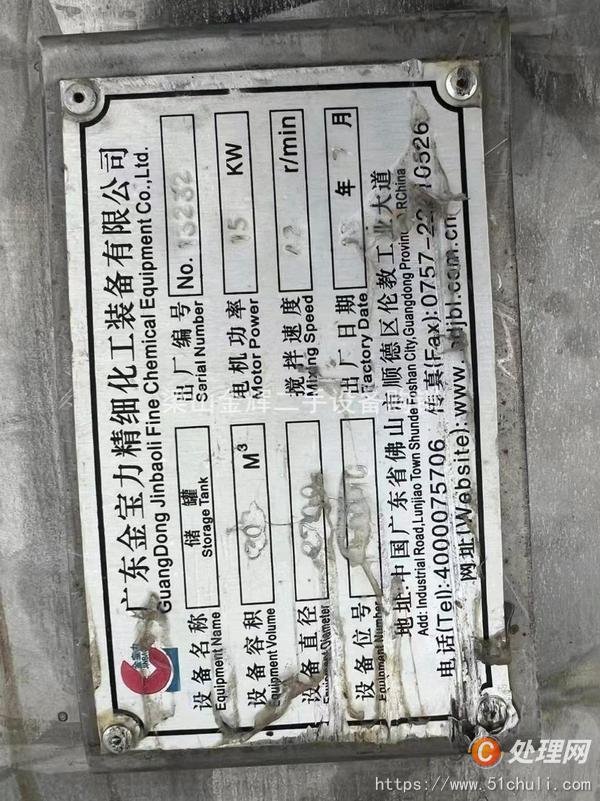 金宝力
广东金宝力精细化工装备有限公司
GuangDong Jinbaoli Fine Chemical Equipment Co.,Ltd.
设备名称 储罐 出厂编号 No.
Equipment Name Storage Tank Serial Number
设备容积 20 M³ 电机功率 15 KW
Equipment Volume Motor Power
设备直径 搅拌速度 r/min
Equipment Diameter Mixing Speed
设备位号 出厂日期 年 月
Equipment Number Factory Date
地址:中国广东省佛山市顺德区伦教工业大道
Add: Industrial Road,Lunjiao Town Shunde Foshan City,Guangdong Province
电话(Tel):4000075706 传真(Fax):0757-
网址(Website):www.
梁山金辉二手设备
处理网
https://www.51chuli.com/